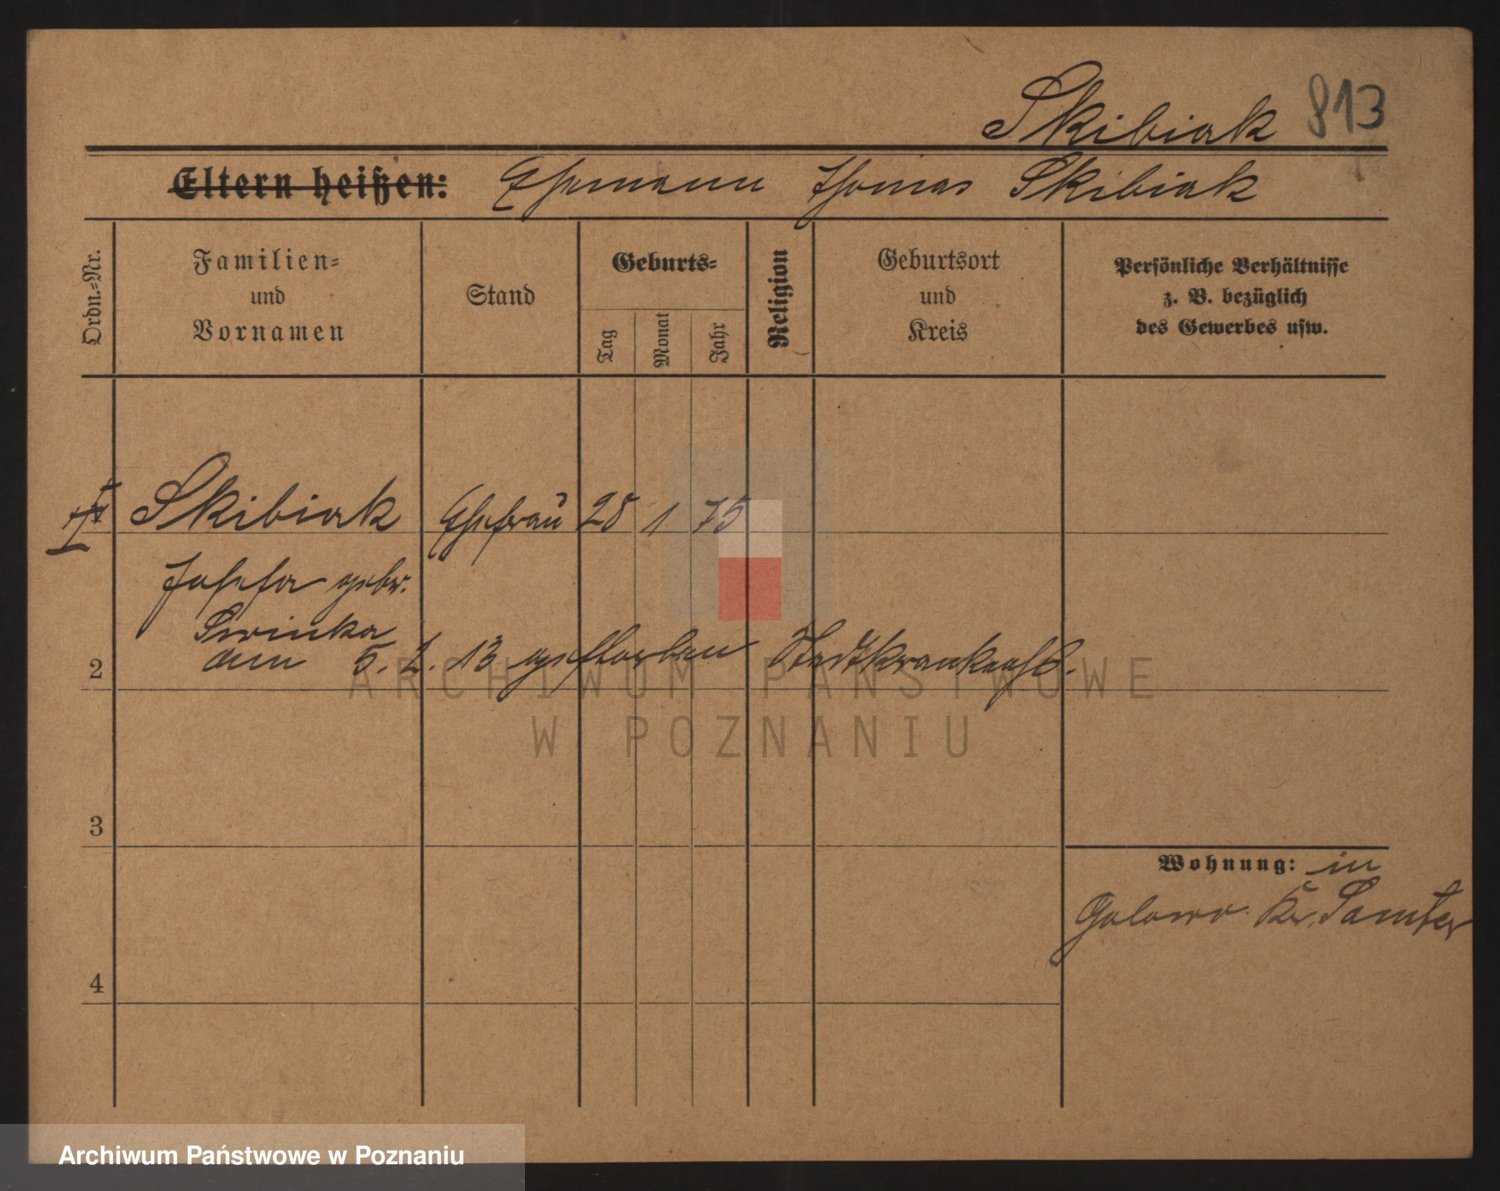 Skibiak 813
Eltern heißen: Ehemann Thomas Skibiak
Ordn.-Nr.
Familien-
und
Vornamen
Stand
Geburts-
Tag
Monat
Jahr
Religion
Geburtsort
und
Kreis
Persönliche Verhältnisse
z. B. bezüglich
des Gewerbes usw.
Skibiak Ehefrau 28 1 75
Josefa gebr.
Swinka
2 am 5. 2. 13 gestorben Stadtkrankenh.
ARCHIWUM PAŃSTWOWE
W POZNANIU
3
Wohnung: in
Golowo Kr. Samter
4
Archiwum Państwowe w Poznaniu